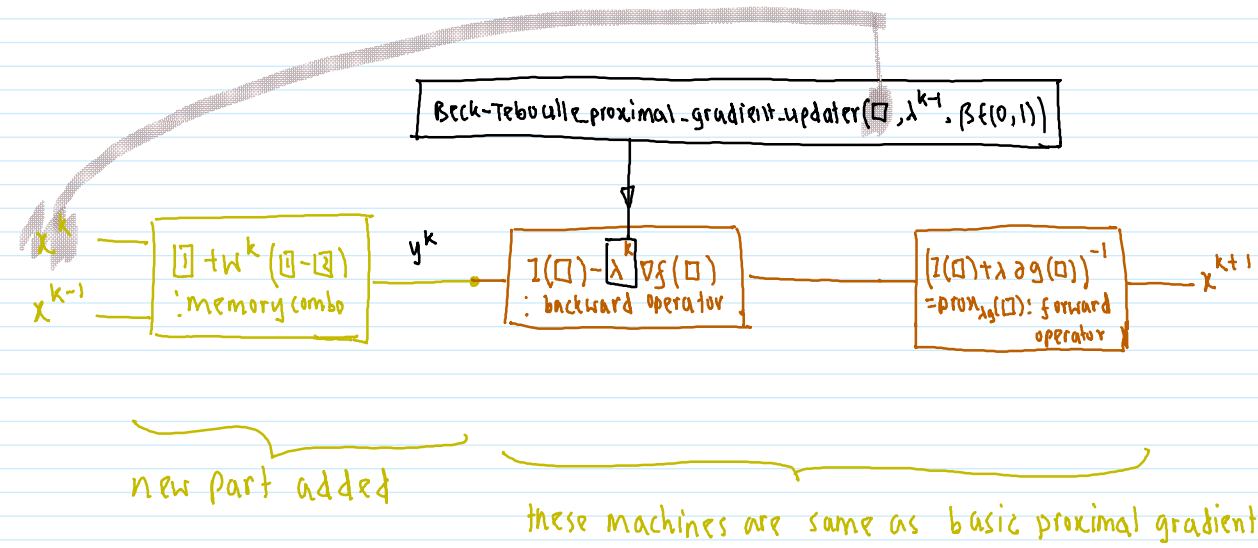 Beck-Teboulle_proximal_gradient_updater(□, λ^{k-1}, β∈(0,1))
x^k
x^{k-1}
[1] + W^k ([1]-[2])
: memory combo
y^k
I(□) - λ^k ∇f(□)
: backward operator
(I(□)+λ∂g(□))^{-1}
=prox_{λg}(□): forward
operator
x^{k+1}
new part added
these machines are same as basic proximal gradient